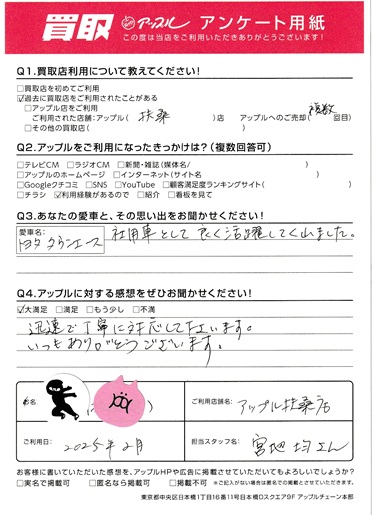 買取 アップル アンケート用紙
この度は当店をご利用いただきありがとうございます!
Q1.買取店利用について教えてください!
□買取を初めてご利用
☑過去に買取店をご利用されたことがある
□アップル店をご利用
ご利用された店舗:アップル( 扶桑 )店 アップルへのご売却( 複数 回目)
□その他の買取店( )
Q2.アップルをご利用になったきっかけは?(複数回答可)
□テレビCM □ラジオCM □新聞・雑誌(媒体名/ )
□アップルのホームページ □インターネット(サイト名 )
□Googleクチコミ □SNS □YouTube □顧客満足度ランキングサイト( )
□チラシ ☑利用経験があるので □紹介 □看板を見て
Q3.あなたの愛車と、その思い出をお聞かせください!
愛車名:
トヨタ タウンエース 社用車として良く活躍してくれました。
Q4.アップルに対する感想をぜひお聞かせください!
☑大満足 □満足 □もう少し □不満
迅速で丁寧に対応して下さいます。
いつもありがとうございます。
お名前
ご利用店舗名: アップル扶桑店
ご利用日: 2025年2月
担当スタッフ名: 宮地 均さん
お客様に書いていただいた感想を、アップルHPや広告に掲載させていただいてもよろしいでしょうか?
□実名で掲載可 □匿名なら掲載可 □掲載不可 ※ご記入がない場合は匿名での掲載とさせていただきます。
東京都中央区日本橋1丁目16番11号日本橋Dスクエア9F アップルチェーン本部